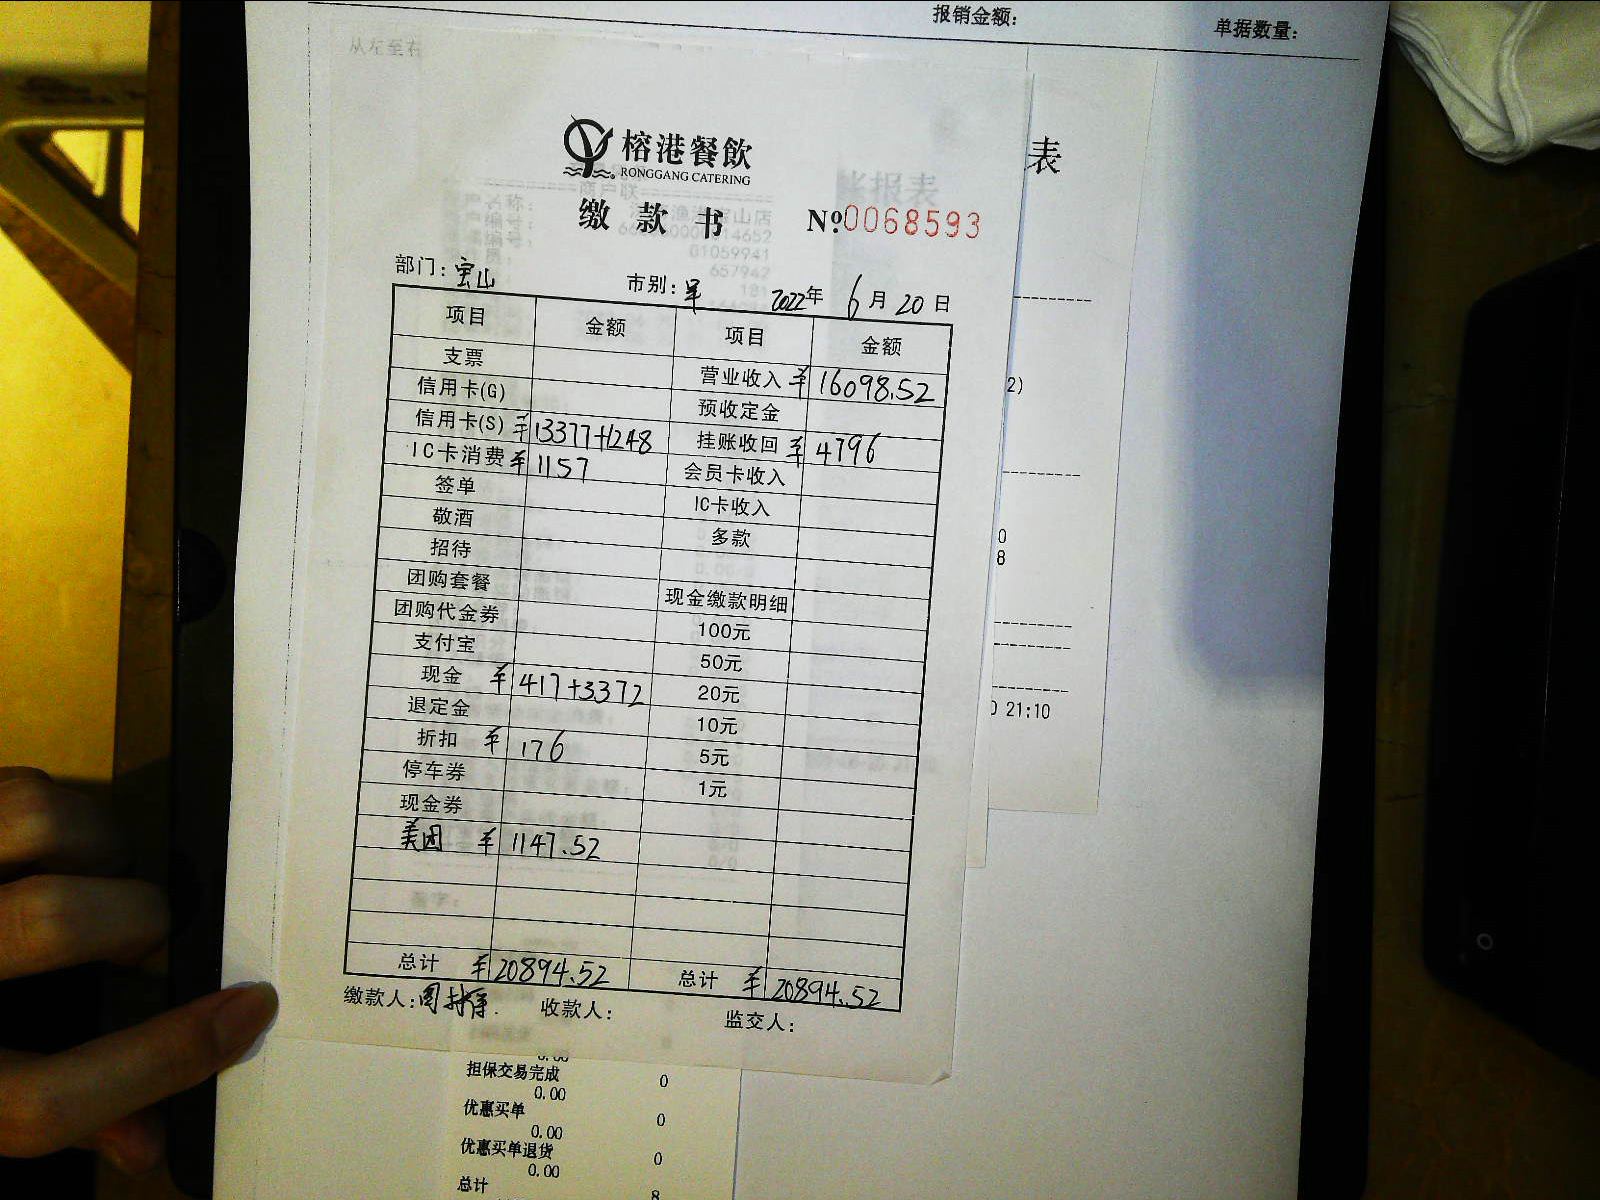 报销金额:
单据数量:
从左至右
表
榕港餐飲
RONGGANG CATERING
缴款书 Nº0068593
部门: 宝山 市别: 早 2022年 6月 20日
项目 金额 项目 金额
支票 营业收入 ¥16098.52
信用卡(G) 预收定金
信用卡(S) ¥13377+1248 挂账收回 ¥4796
IC卡消费 ¥1157 会员卡收入
签单 IC卡收入
敬酒 多款
招待
团购套餐 现金缴款明细
团购代金券 100元
支付宝 50元
现金 ¥417+3372 20元
退定金 10元
折扣 ¥176 5元
停车券 1元
现金券
美团 ¥1147.52
总计 ¥20894.52 总计 ¥20894.52
缴款人: 收款人: 监交人:
2)
0
8
21:10
担保交易完成 0
0.00
优惠买单 0
0.00
优惠买单退货 0
0.00
总计 8